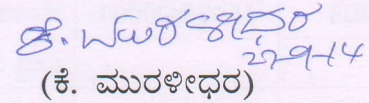 ಕೆ. ಮುರಳೀಧರ
27-9-14
(ಕೆ. ಮುರಳೀಧರ)